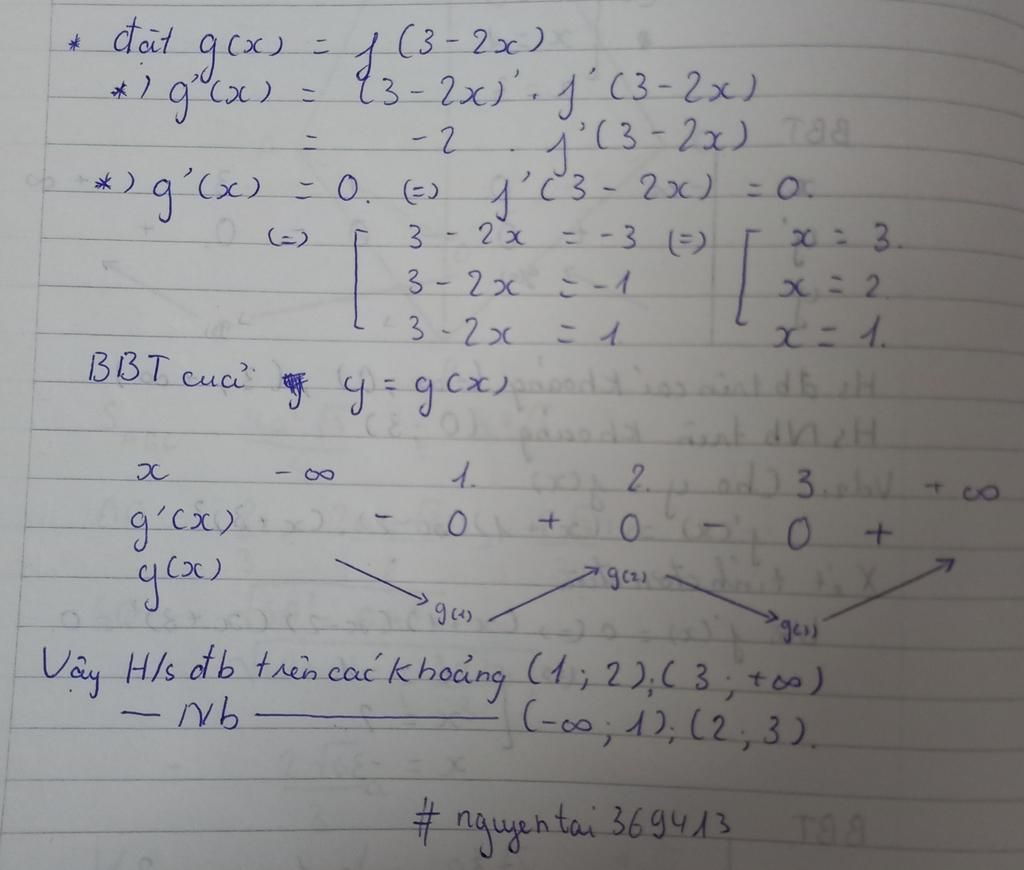 * đặt g(x) = f(3 - 2x)
*) g'(x) = (3 - 2x)' . f'(3 - 2x)
= -2 . f'(3 - 2x)
*) g'(x) = 0. (=) f'(3 - 2x) = 0.
(=) [ 3 - 2x = -3 (=) [ x = 3.
3 - 2x = -1 x = 2
3 - 2x = 1 x = 1.
BBT cuả y = g(x)
x -∞ 1. 2. 3. +∞
g'(x) - 0 + 0 - 0 +
g(x) g(1) g(2) g(3)
Vậy H/s đb trên các khoảng (1; 2); (3; +∞)
— Nb ——— (-∞; 1); (2; 3).
# nguyentai369413